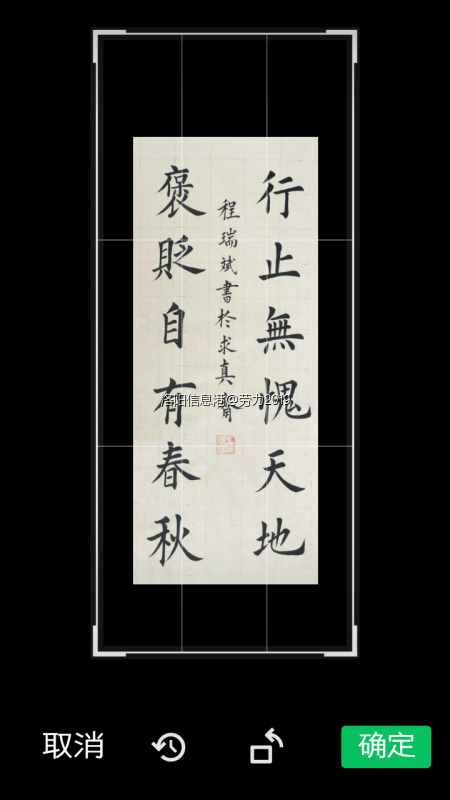 行止無愧天地
褒貶自有春秋
程瑞斌書於求真齋
洛阳信息港@劳力2019
取消
确定